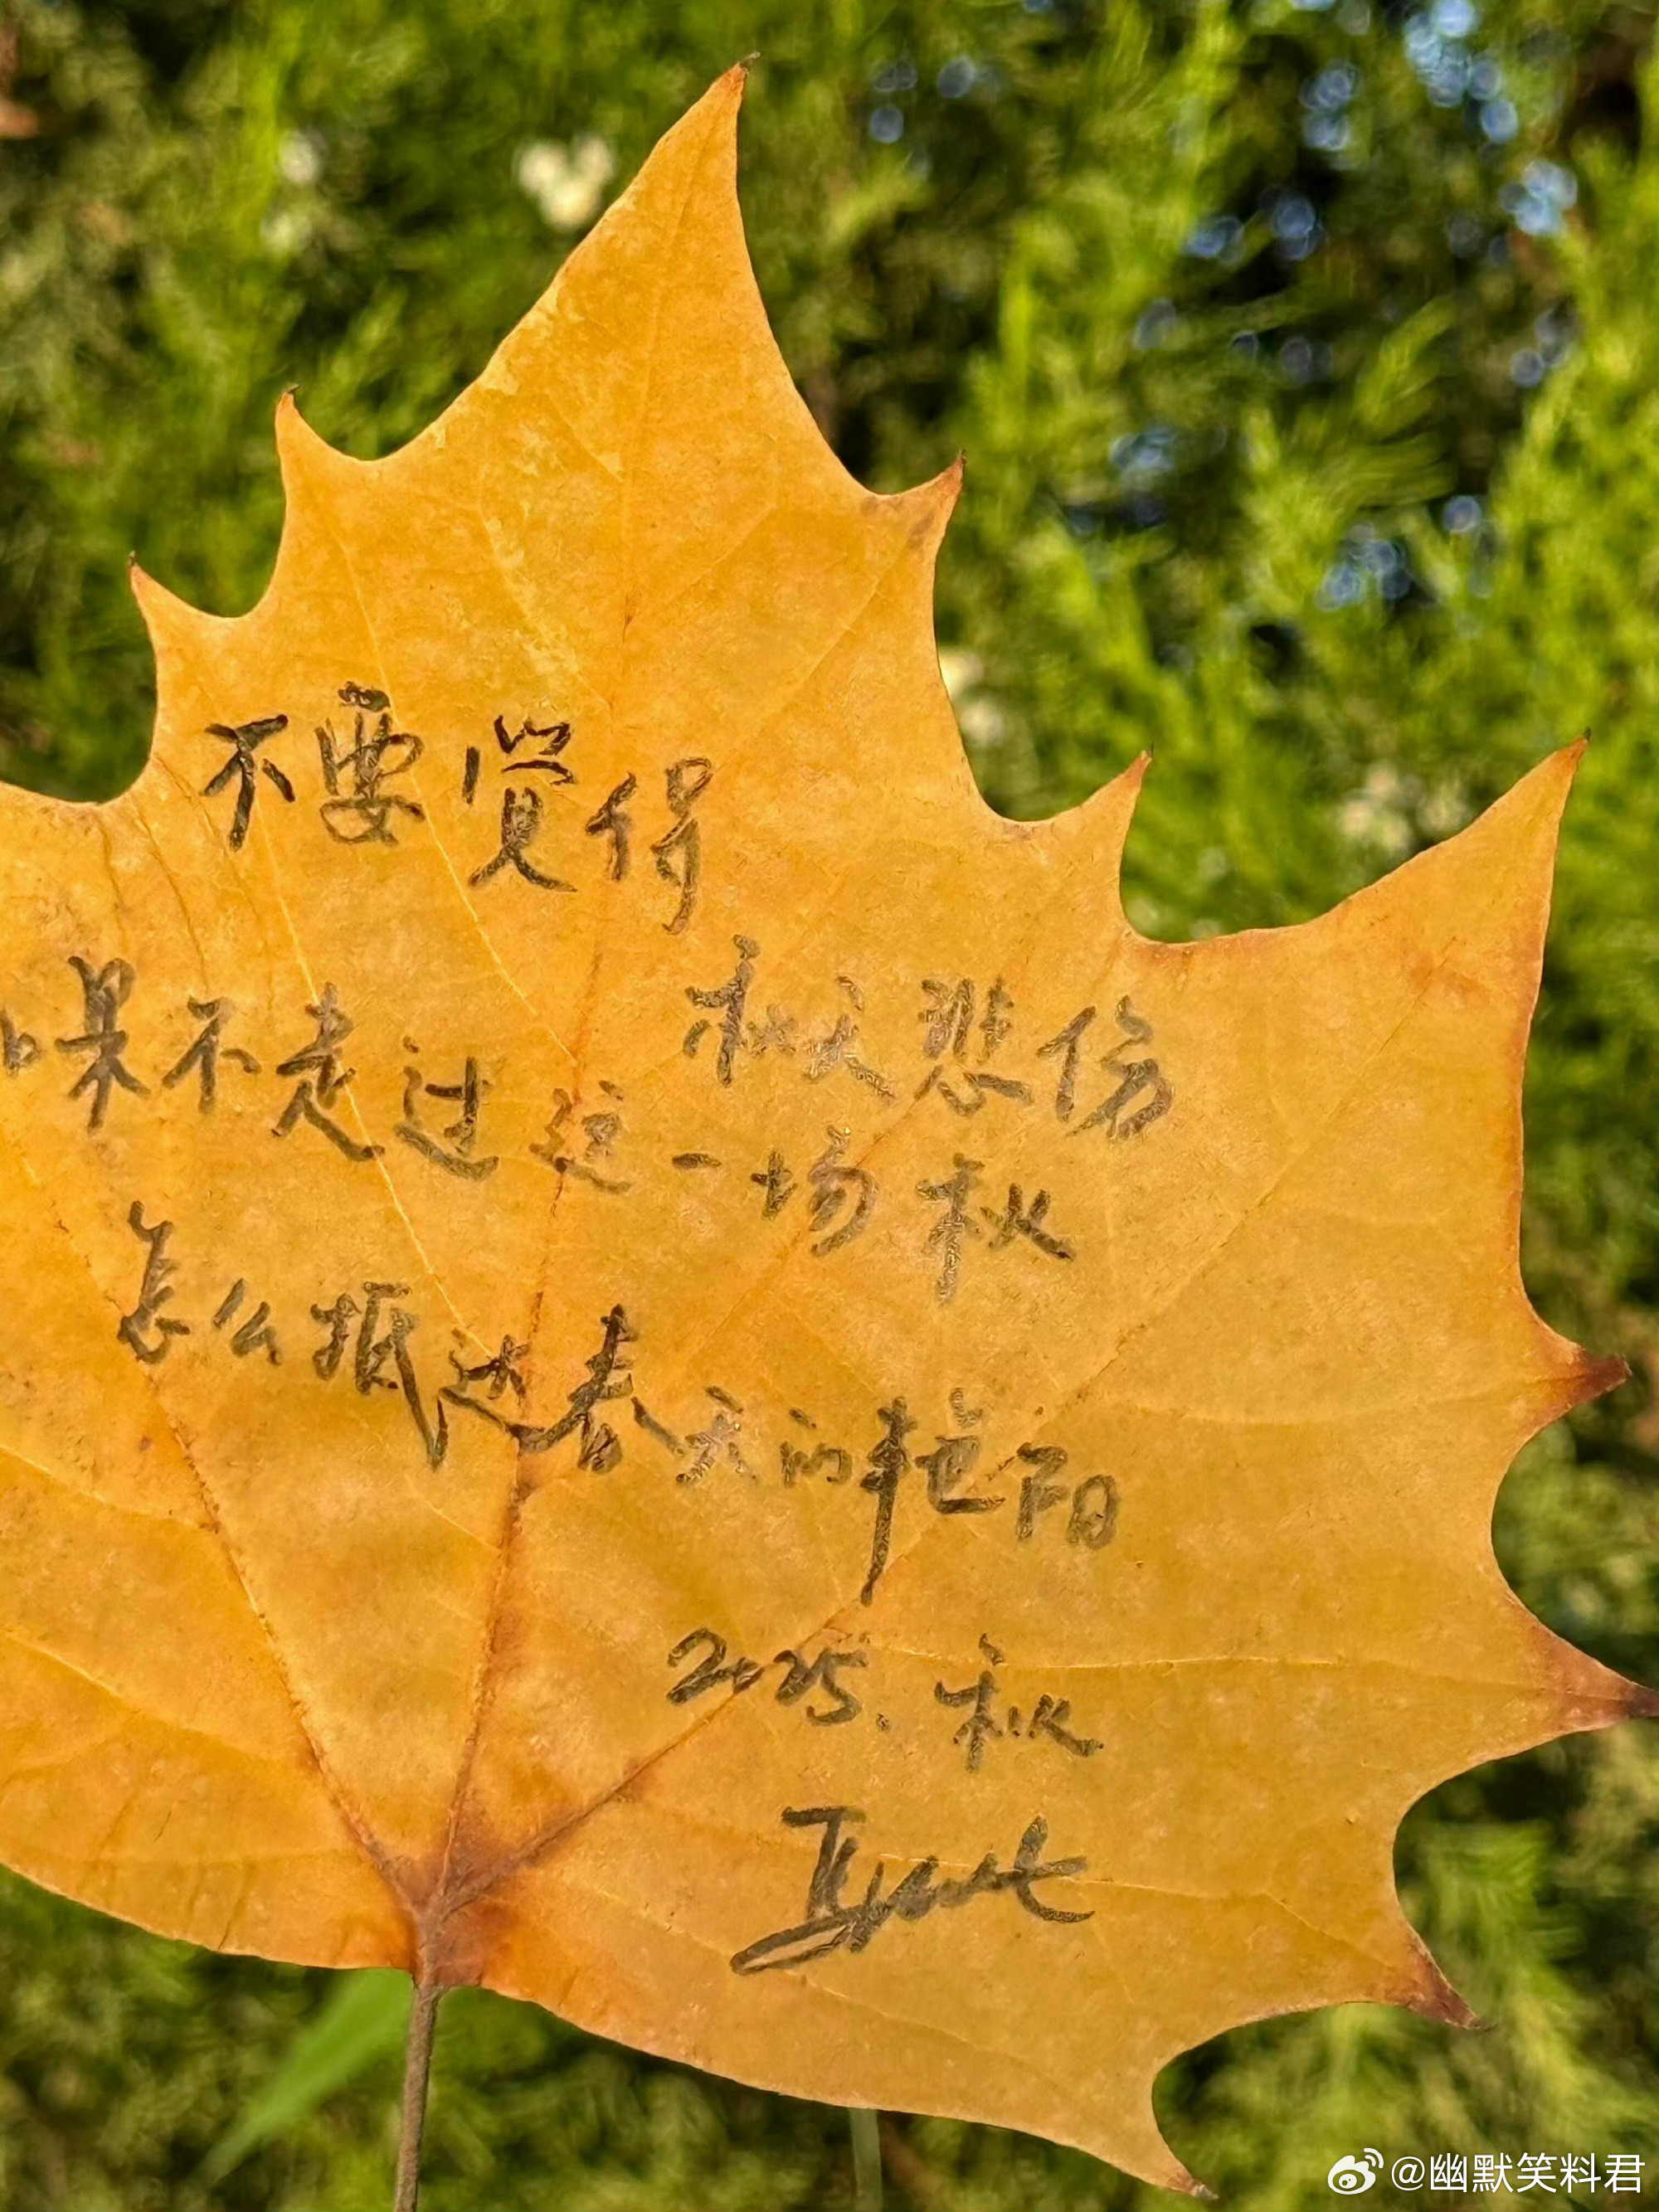 不要觉得
秋天悲伤
如果不走过这一场秋
怎么抵达春天的艳阳
2025.秋
@幽默笑料君